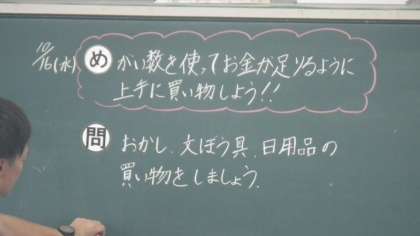 10/16(水)
め がい数を使ってお金が足りるように
上手に買い物しよう!!
問 おかし、文ぼう具、日用品の
買い物をしましょう。